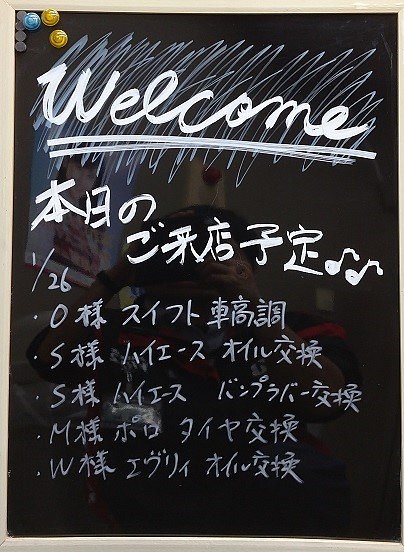 Welcome
本日の
ご来店予定♪♪
1/26
・O様 スイフト 車高調
・S様 ハイエース オイル交換
・S様 ハイエース バンプラバー交換
・M様 ポロ タイヤ交換
・W様 エヴリィ オイル交換